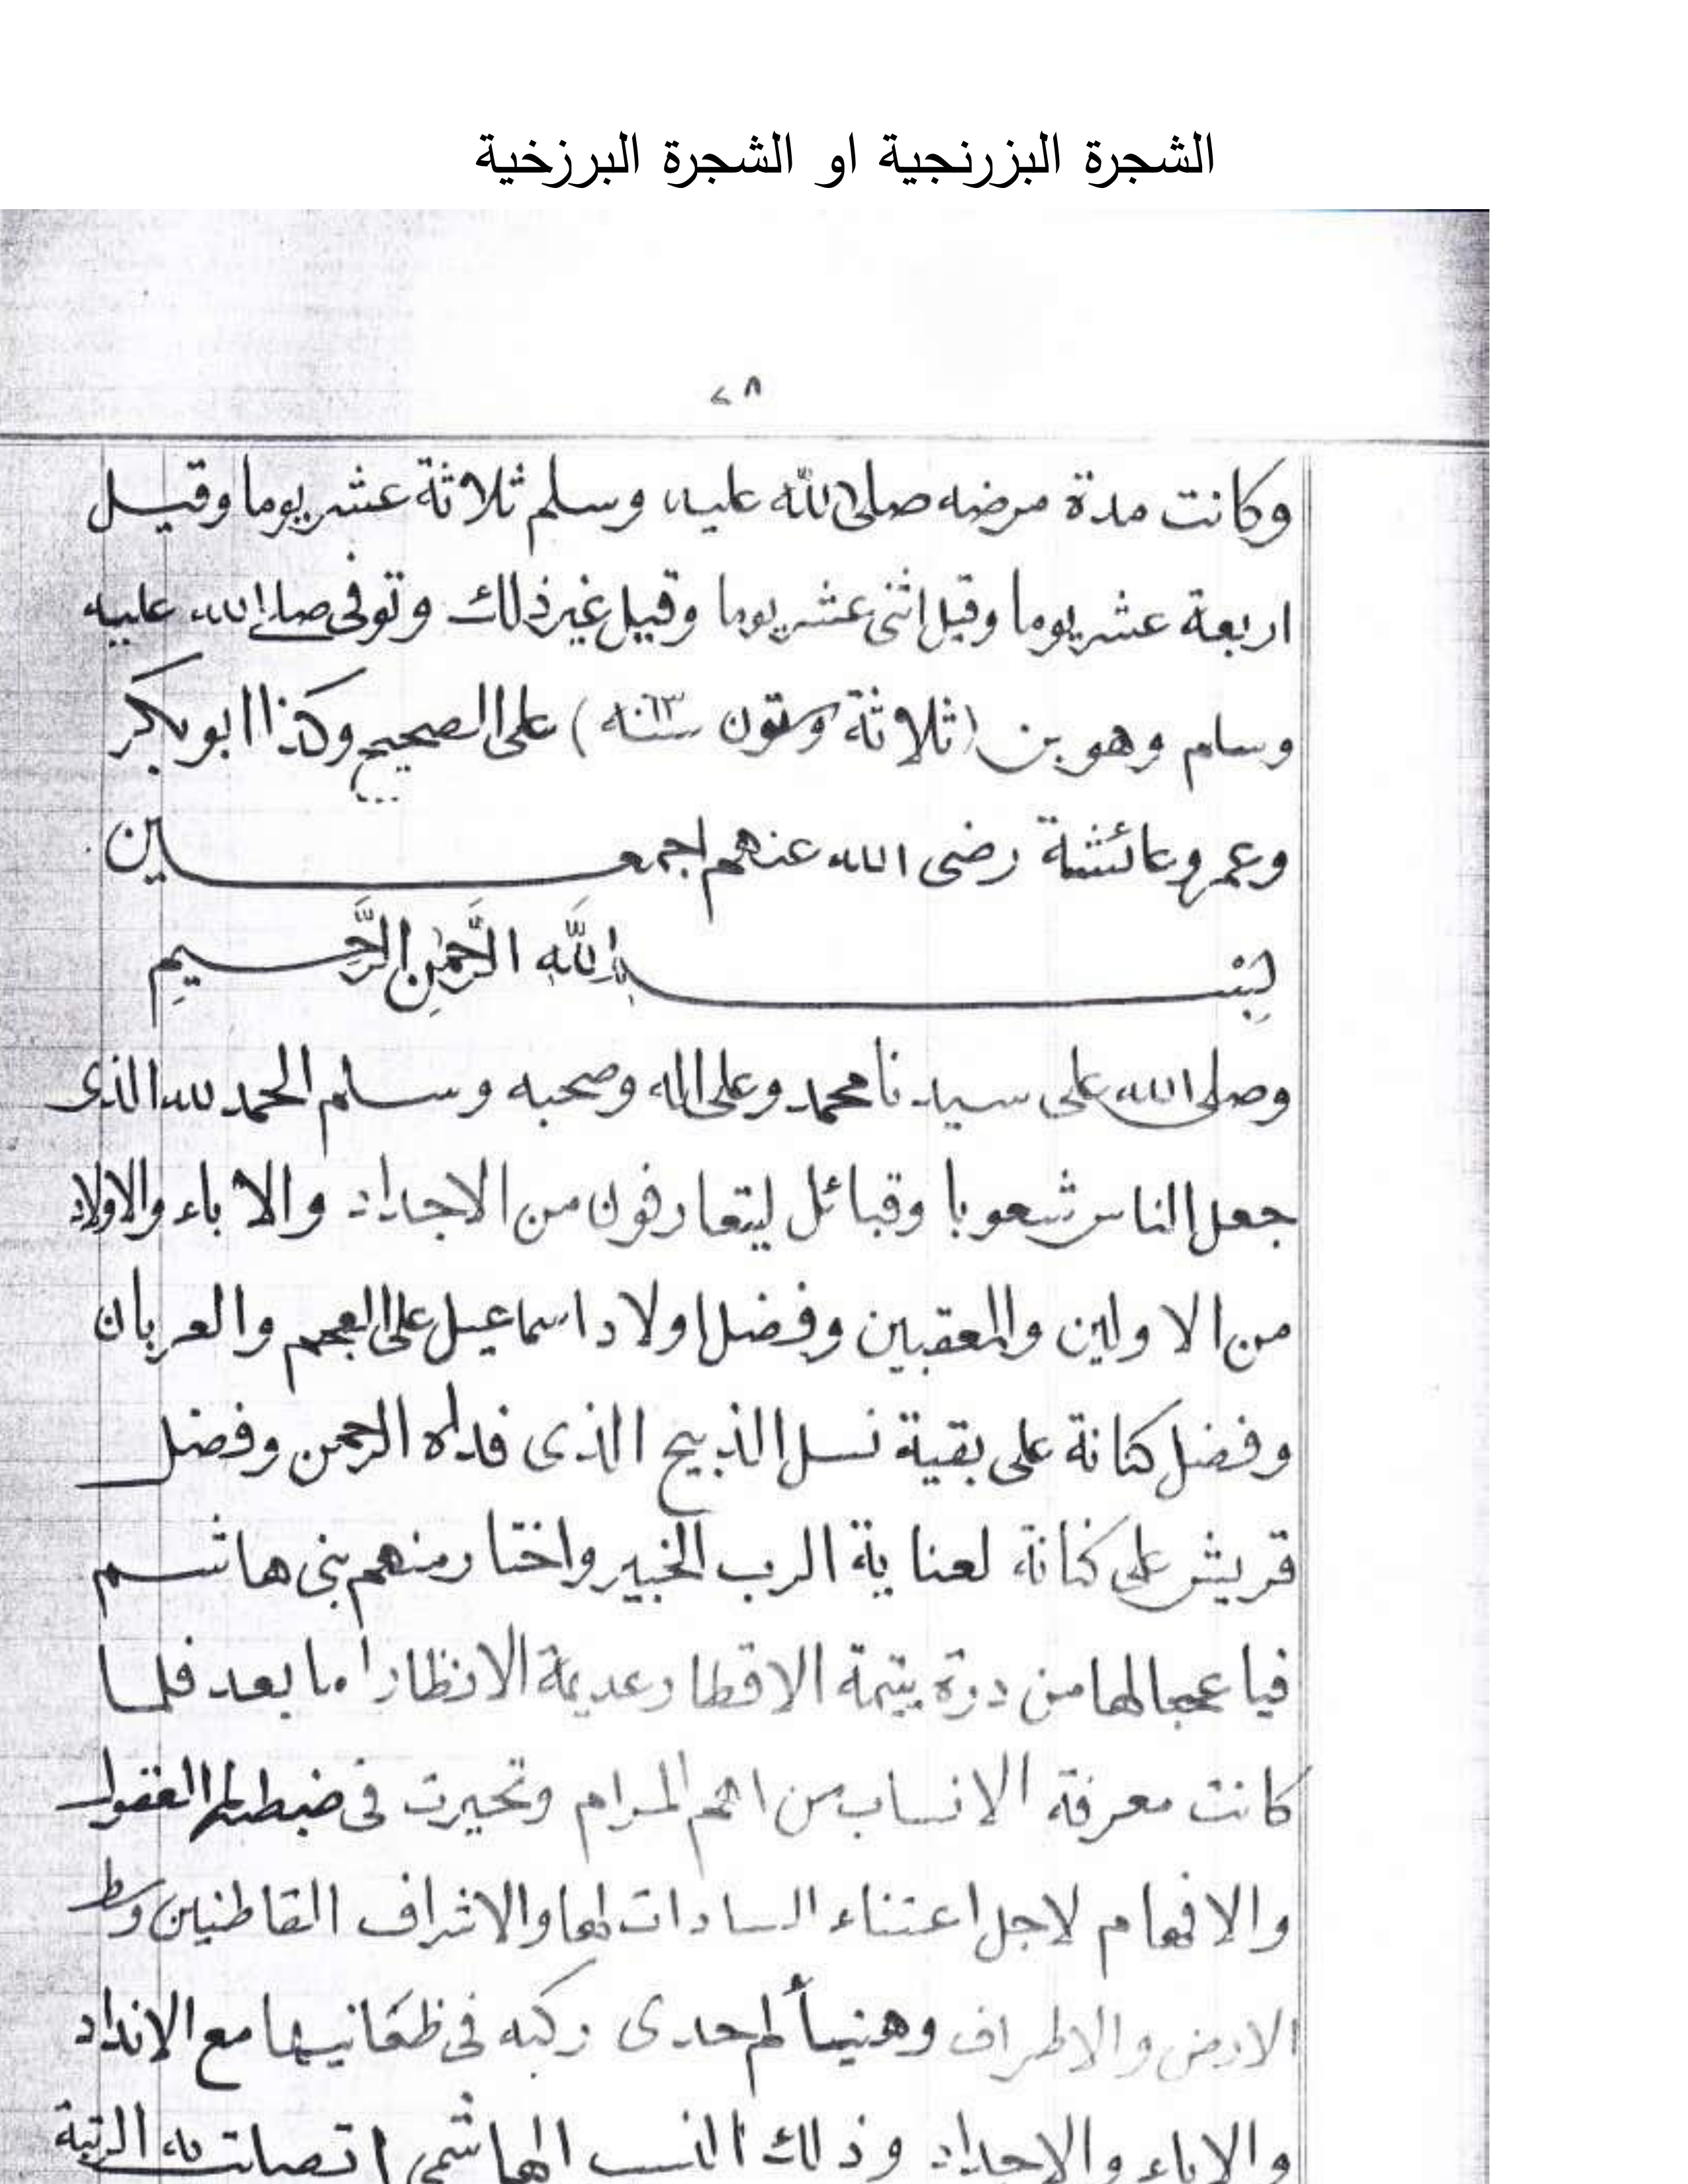 الشجرة البزرنجية او الشجرة البرزخية
٢٨
وكانت مدة مرضه صلى الله عليه وسلم ثلاثة عشر يوما وقيل
اربعة عشر يوما وقيل اثنى عشر يوما وقيل غير ذلك وتوفى صلى الله عليه
وسلم وهو بن (ثلاثة وستون سنه ٦٣) على الصحيح وكذا ابو بكر
وعمر وعائشة رضى الله عنهم اجمعين
بِسْمِ اللَّهِ الرَّحْمٰنِ الرَّحِيمِ
وصلى الله على سيدنا محمد وعلى اله وصحبه وسلم الحمد لله الذى
جعل الناس شعوبا وقبائل ليتعارفون من الاجداد والاباء والاولاد
من الاولين والمعقبين وفضل اولاد اسماعيل على العجم والعربان
وفضل كنانة على بقية نسل الذبيح الذى فداه الرحمن وفضل
قريش على كنانة لعناية الرب الخبير واختار منهم بنى هاشم
فيا عجبا لها من درة يتيمة الاقطار عديمة الانظار اما بعد فلما
كانت معرفة الانساب من اهم المرام وتحيرت فى ضبطها العقول
والافهام لاجل اعتناء السادات لها والاشراف القاطنين وسط
الارض والاطراف وهنيأ لم حدى ركبه فى مع الانداد
والاباء والاجداد وذلك النسب الهاشمى اتصلت به الرتبة